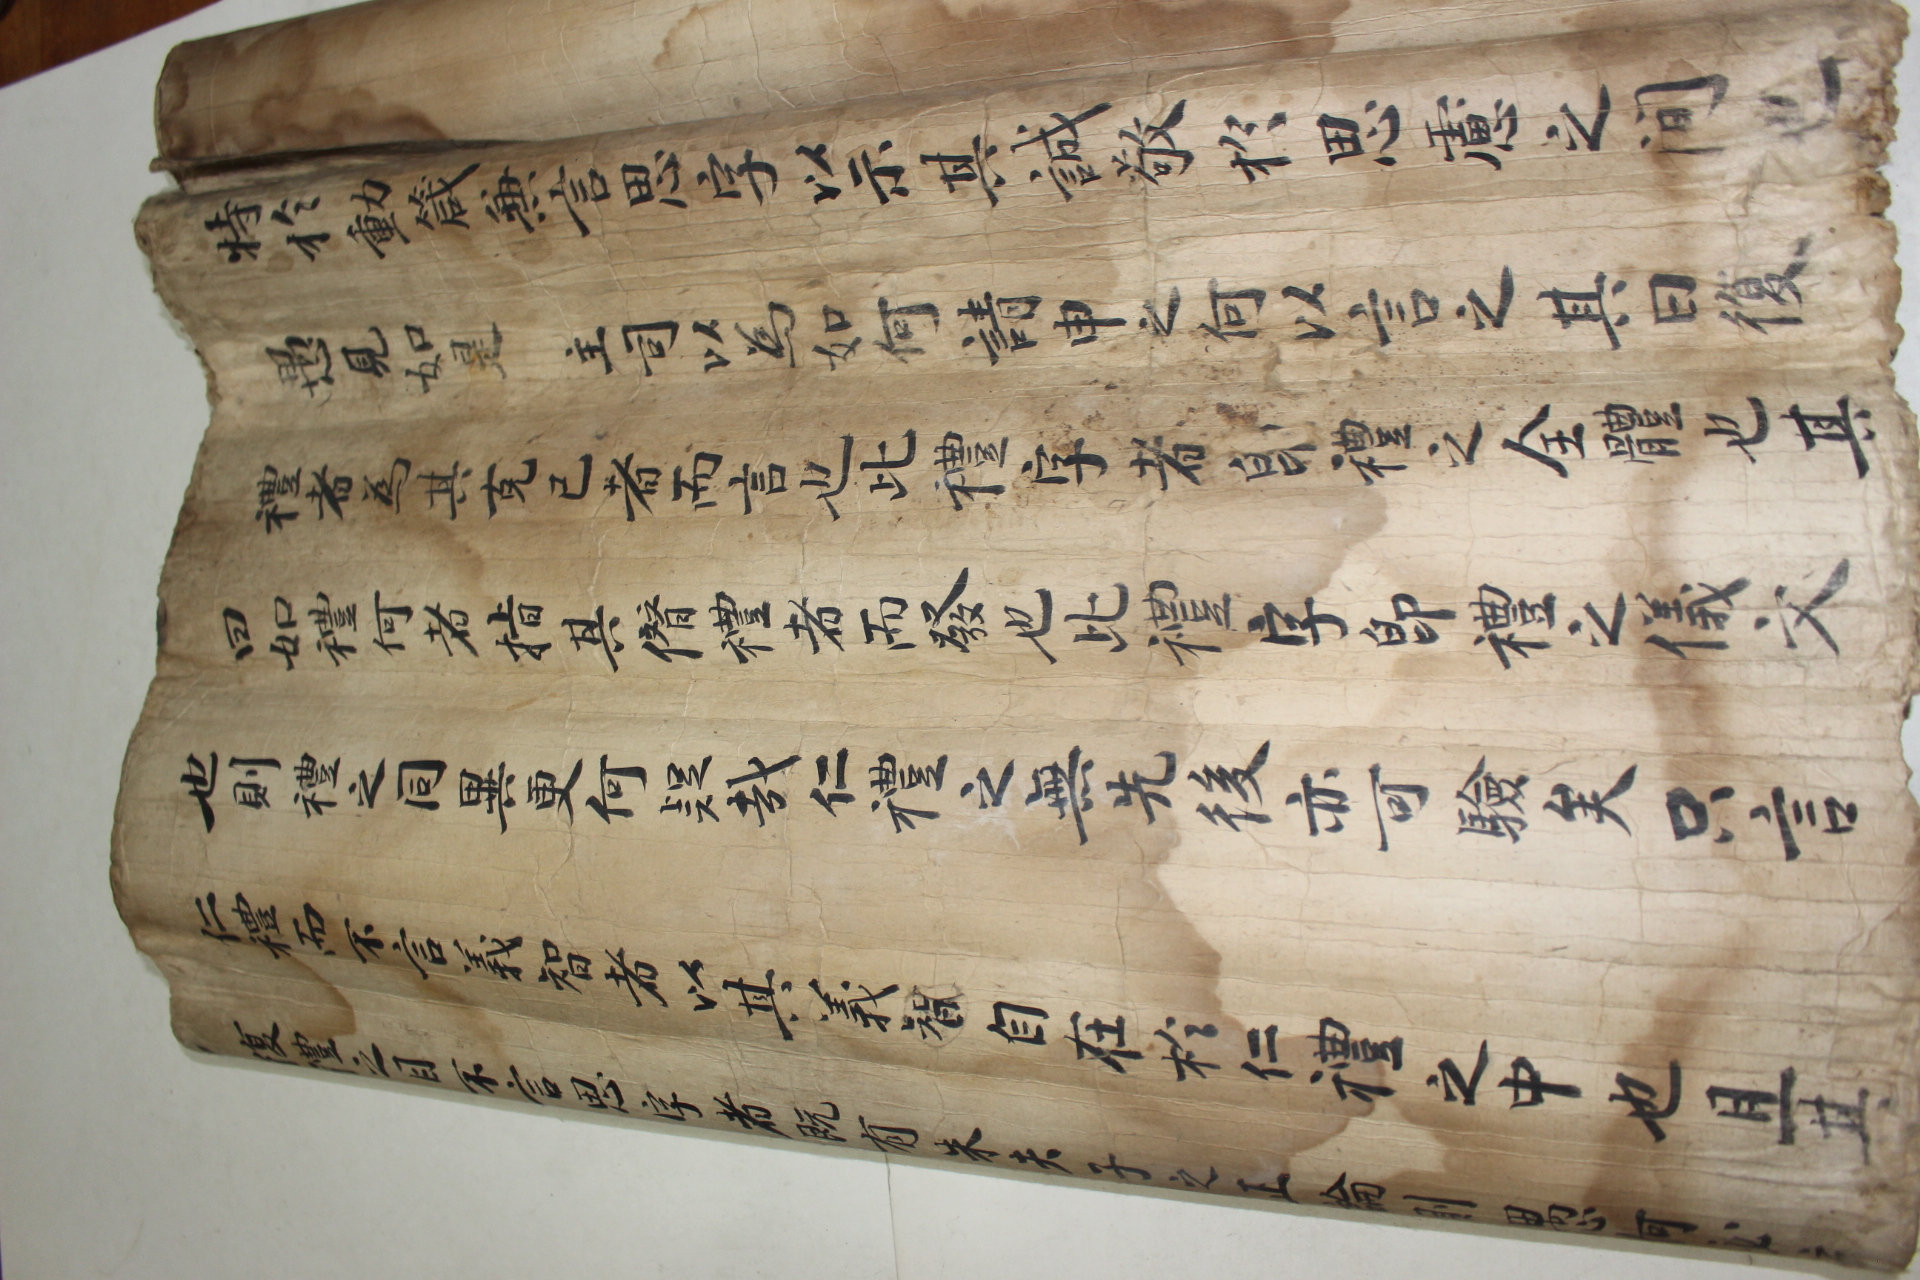 特於動箴無言思字以示其誠敬於思慮之间也
愚見如是 主司以為如何請申之何以言之其曰復
禮者為其克己者而言也此禮字者卽禮之全體也其
曰如禮何者指其僭禮者而發也此禮字卽禮之儀文
也則禮之同異更何疑哉仁禮之無先後亦可驗矣只言
仁禮而不言義智者以其義智自在於仁禮之中也且其
復禮之目不言思字者旣有朱夫子之正論則愚何必